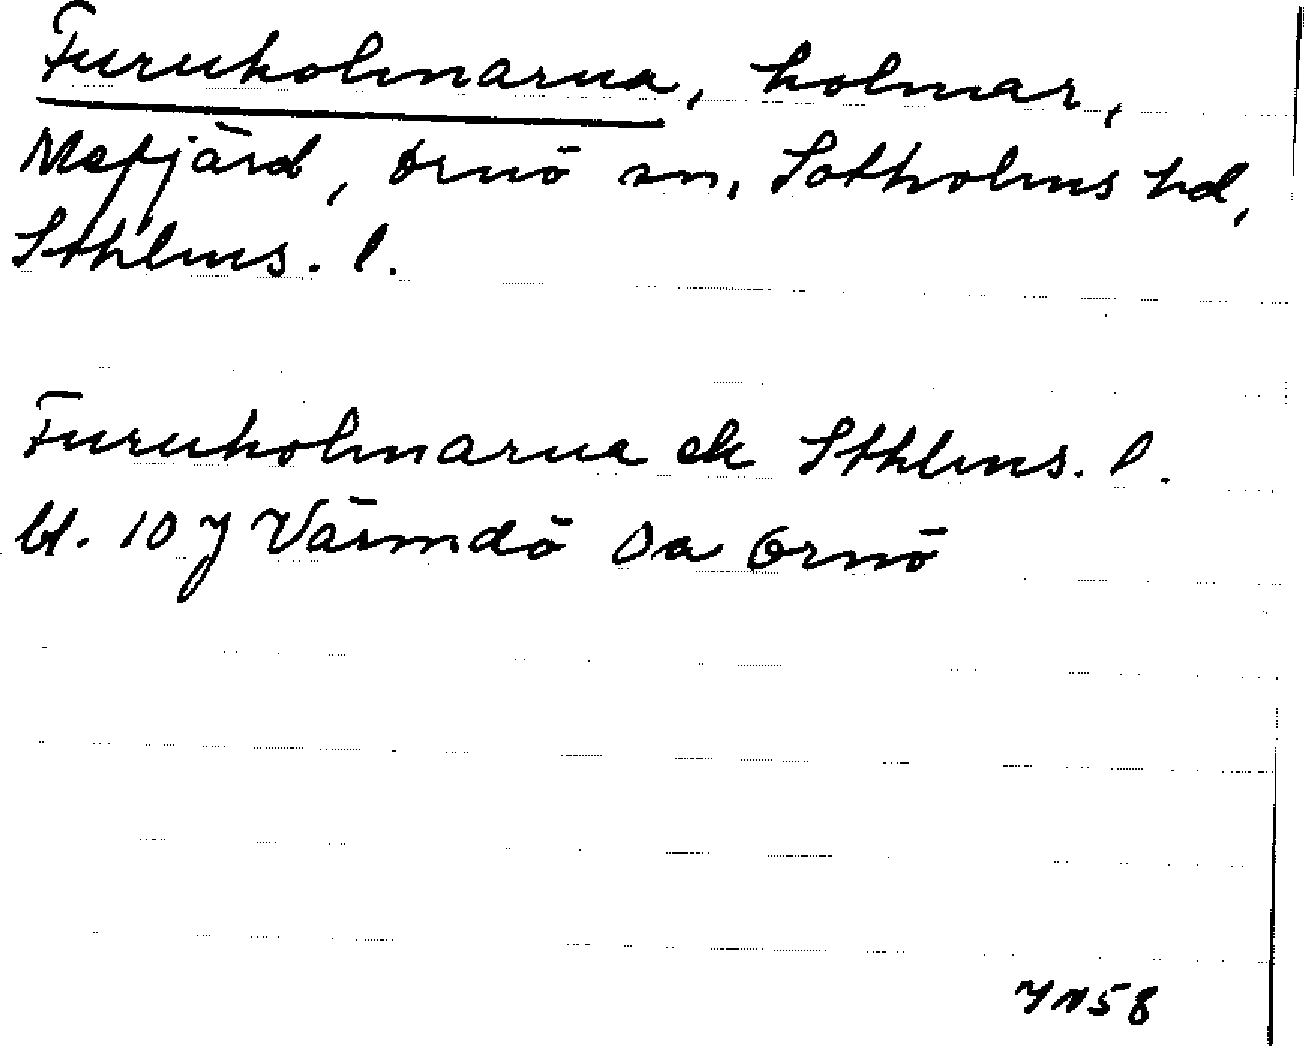 Furuholmarna, holmar,
Mefjärd, Ornö sn, Sotholms hd,
Sthlms. l.
Furuholmarna ek Sthlms. l.
bl. 10 J Värmdö Oa Ornö